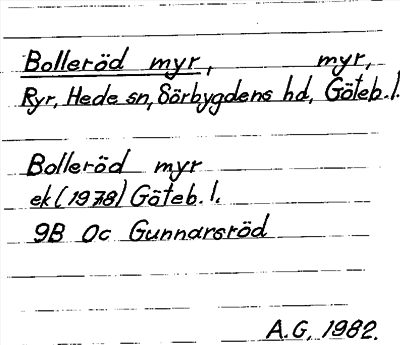 Bolleröd myr, myr,
Ryr, Hede sn, Sörbygdens hd, Göteb. l.
Bolleröd myr
ek (1978) Göteb. l.
9B 0c Gunnarsröd
A.G. 1982.